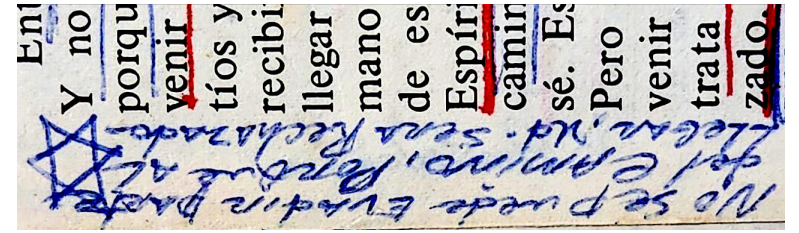 Ent
Y no
porqu
venir
tíos y
recibi
llegar
mano
de es
Espíri
camin
sé. Es
Pero
venir
trata
zado.
No se puede Evadir parte
del Camino, Porqué al
Llegar, Ud. Sera Rechazado-